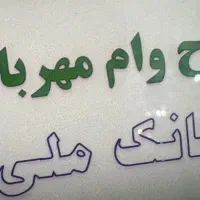 ح وام مهربا
بانک ملی